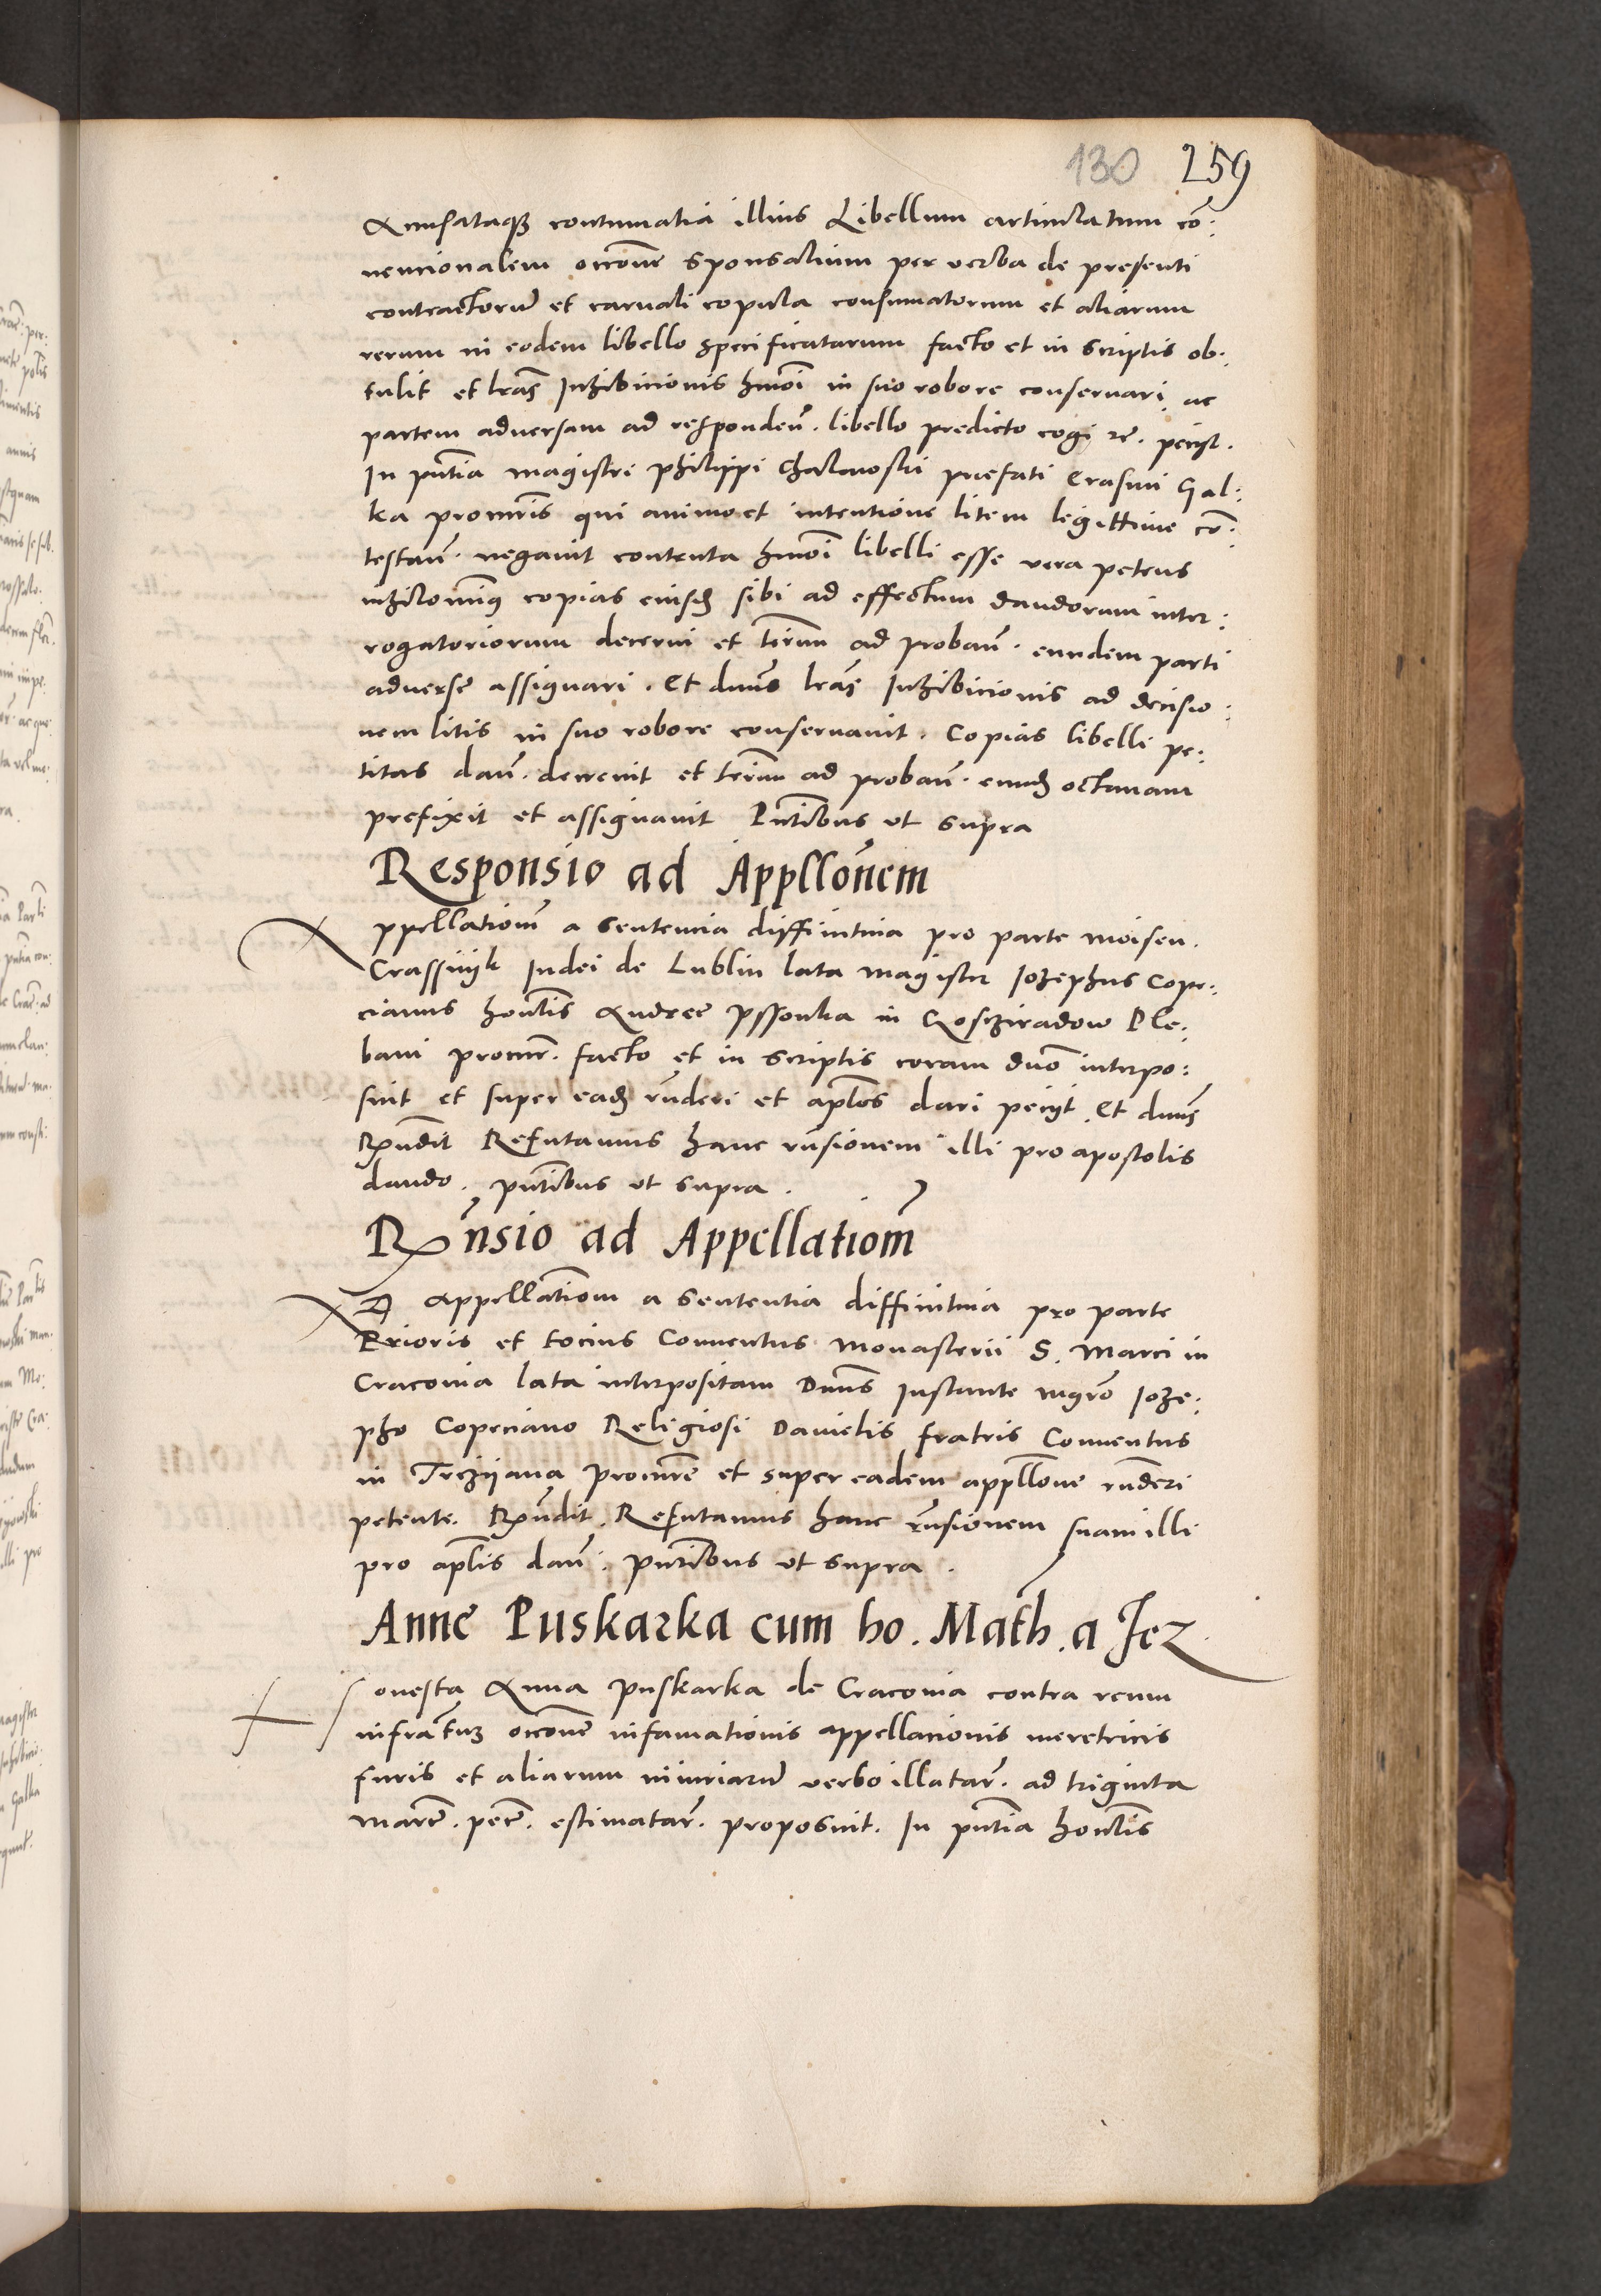 130 259
Accusataque contumatia illius Libellum articulatum cō:
nencionalem occōne sponsalium per verba de presenti
contractorū et carnali copula consumatorum et aliarum
rerum in eodem libello specificatarum facto et in scriptis ob:
tulit et lrās Inhibicionis hmōi in suo robore conservari ac
partem adversam ad respondeñ. libello predicto cogi rē. pecijt.
In pūtia magistri philippi Chalmoskÿ praefati Erasmi Gal:
ka procuris qui animo et intentione litem legittime cō:
testañ. negavit contenta hmōi libelli esse vera petens
nihilominꝰ copias eiusdē sibi ad effectum dandorum inter:
rogatoriorum decerni et terīm ad probañ. eundem parti
adverse assignari. Et dnūs lrās Inhibicionis ad decisio:
nem litis in suo robore conservavit. Copias libelli pe:
titas dañ. decrevit et terīm ad probañ. eundē octavam
prefixit et assignavit Pūtibus ut supra
Responsio ad Appllōnem
Appellationē a sentencia diffinitiva pro parte moisen.
Crassnÿk Iudei de Lublin lata magister Iozephus Copr:
cianus honlīs Andree pssonka in Goscziradow Ple:
bani procur̄. facto et in scriptis coram dnō interpo:
suit et super eadē rn̄deri et aplōs dari pecijt. Et dnūs
Rn̄dit Refutamus hanc rn̄sionem illi pro apostolis
dando. pūtibus ut supra.
Rn̄sio ad Appellationē
Ad appellātiom a sententia diffinitiva pro parte
Prioris et tocius Conventus monasterii S. Marci in
Cracovia lata interpositam Dnūs Instante mgrō Ioze:
pho Coperciano Religiosi Danielis fratris Conventus
in Trczijana procurē et super eadem appllōne rn̄deri
petente. Rn̄dit. Refutamus hanc rn̄sionem suam illi
pro aplīs dañ. pūtibus ut supra.
Anne Puskarka cum ho. Math. a Jez
Honesta Anna puskarka de Cracovia contra reum
infrāctum occōne infamationis appellacionis meretricis
furis et aliarum iniuriarū verbo illatar̄. ad triginta
marcē. pecē. estimatar̄. proposuit. In pūtia honlīs